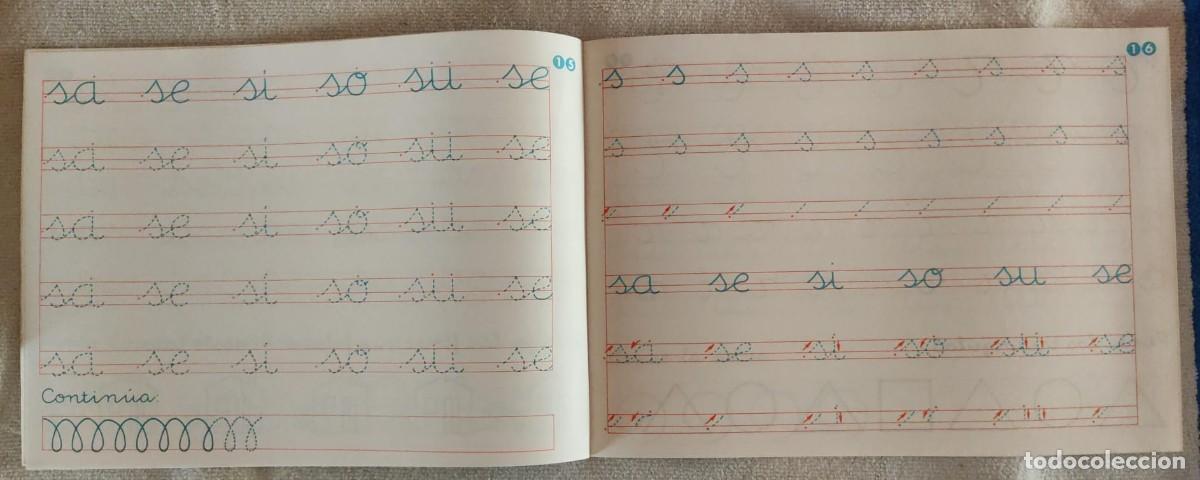 15
sa se si so su se
sa se si so su se
sa se si so su se
sa se si so su se
sa se si so su se
Continúa:
16
s s s s s s s s s
s s s s s s s s s
sa se si so su se
sa se si so su se
todocoleccion